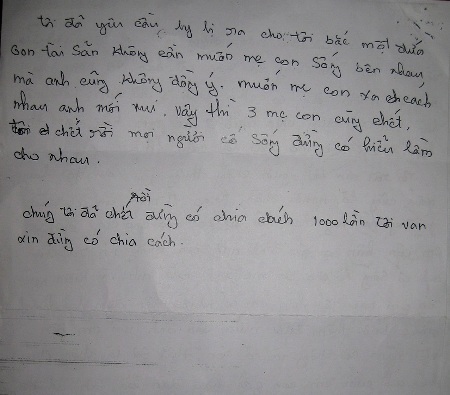 tôi đã yêu cầu ly li ra cho tôi bắc một đứa
con tài sản không cần muốn mẹ con sống bên nhau
mà anh cũng không đồng ý. muốn mẹ con xa cách
nhau anh mới vui. vậy thì 3 mẹ con cùng chết.
chết rồi mọi người cố sống đừng có hiểu lầm
cho nhau.
rồi
chúng tôi đã chết đừng có chia cách 1000 lần tôi van
xin đừng có chia cách.